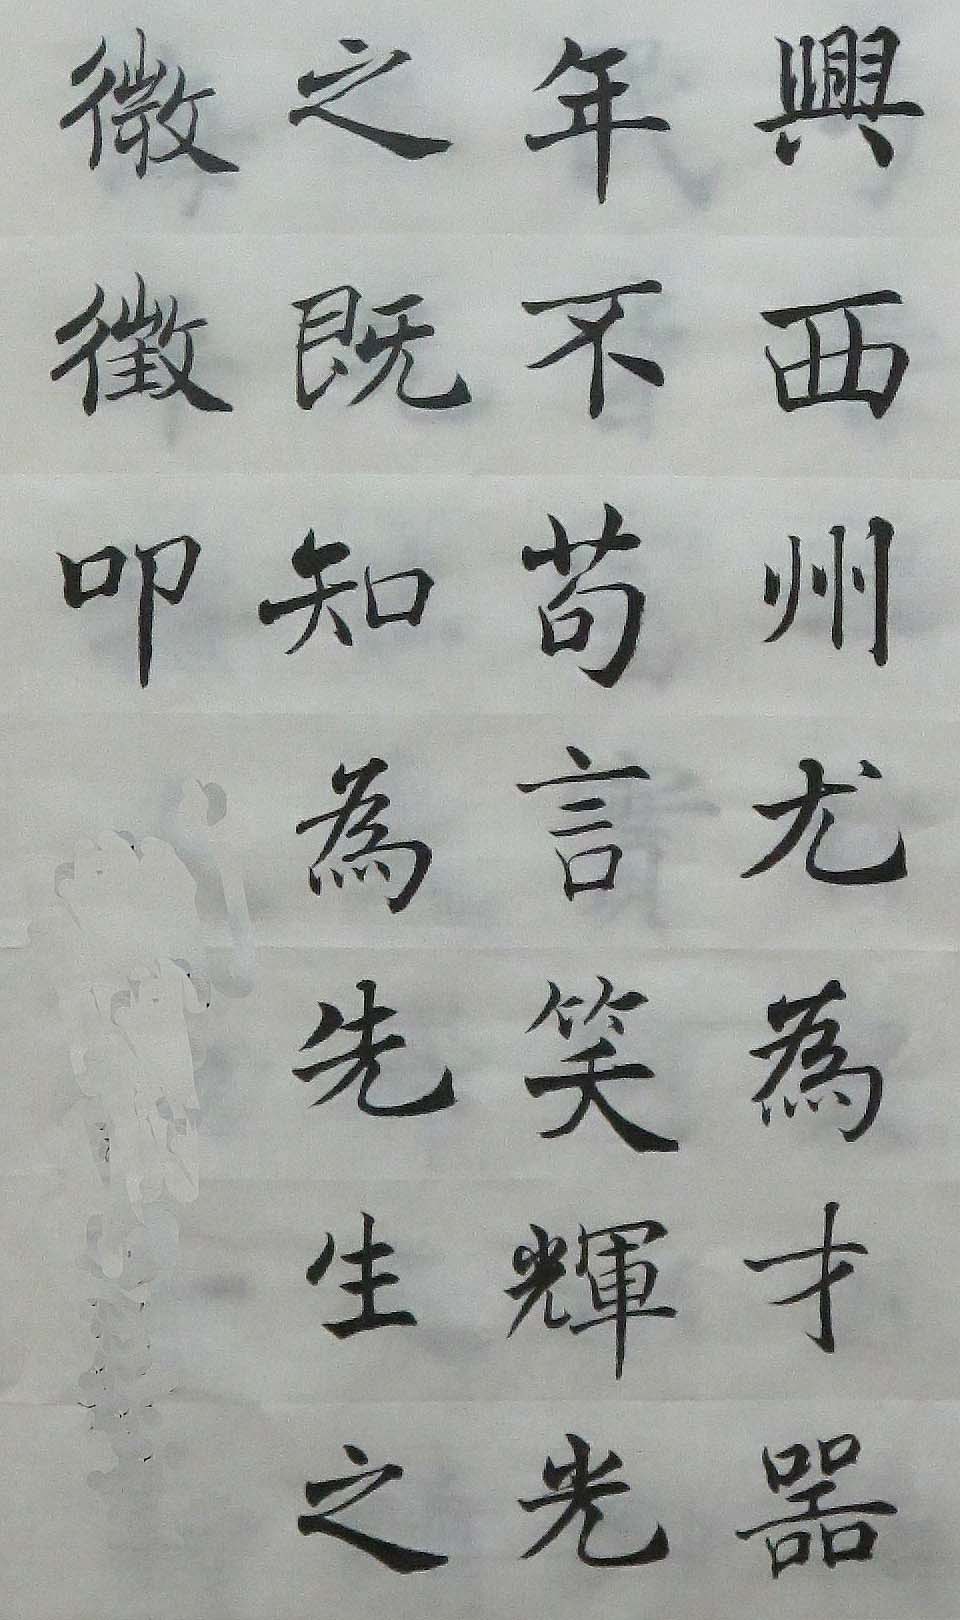 興西州尤為才器
年不苟言笑輝光
之既知為先生之
微徵叩